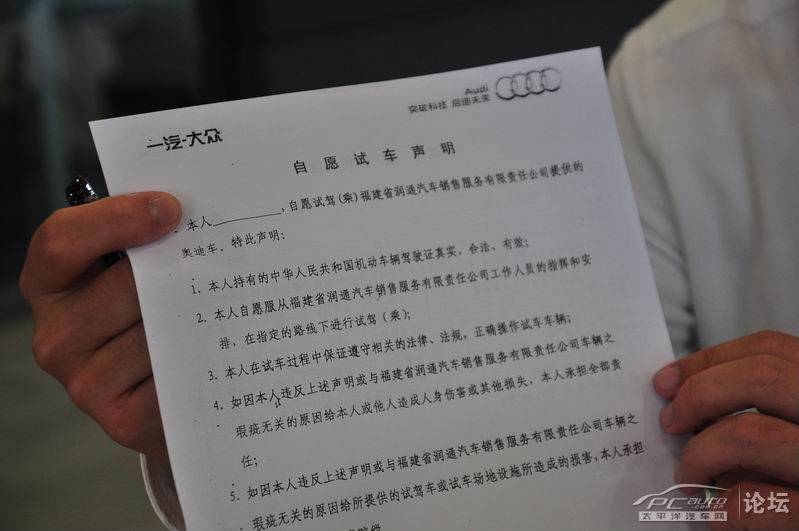 一汽-大众
Audi
突破科技 启迪未来
自愿试车声明
本人________,自愿试驾(乘)福建省润通汽车销售服务有限责任公司提供的
奥迪车。特此声明:
1. 本人持有的中华人民共和国机动车辆驾驶证真实、合法、有效;
2. 本人自愿服从福建省润通汽车销售服务有限责任公司工作人员的指挥和安
排,在指定的路线下进行试驾(乘);
3. 本人在试车过程中保证遵守相关的法律、法规,正确操作试车车辆;
4. 如因本人违反上述声明或与福建省润通汽车销售服务有限责任公司车辆之
瑕疵无关的原因给本人或他人造成人身伤害或其他损失,本人承担全部责
任;
5. 如因本人违反上述声明或与福建省润通汽车销售服务有限责任公司车辆之
瑕疵无关的原因给所提供的试驾车或试车场地设施所造成的损害,本人承担
赔偿
PCauto.com.cn
太平洋汽车网
论坛